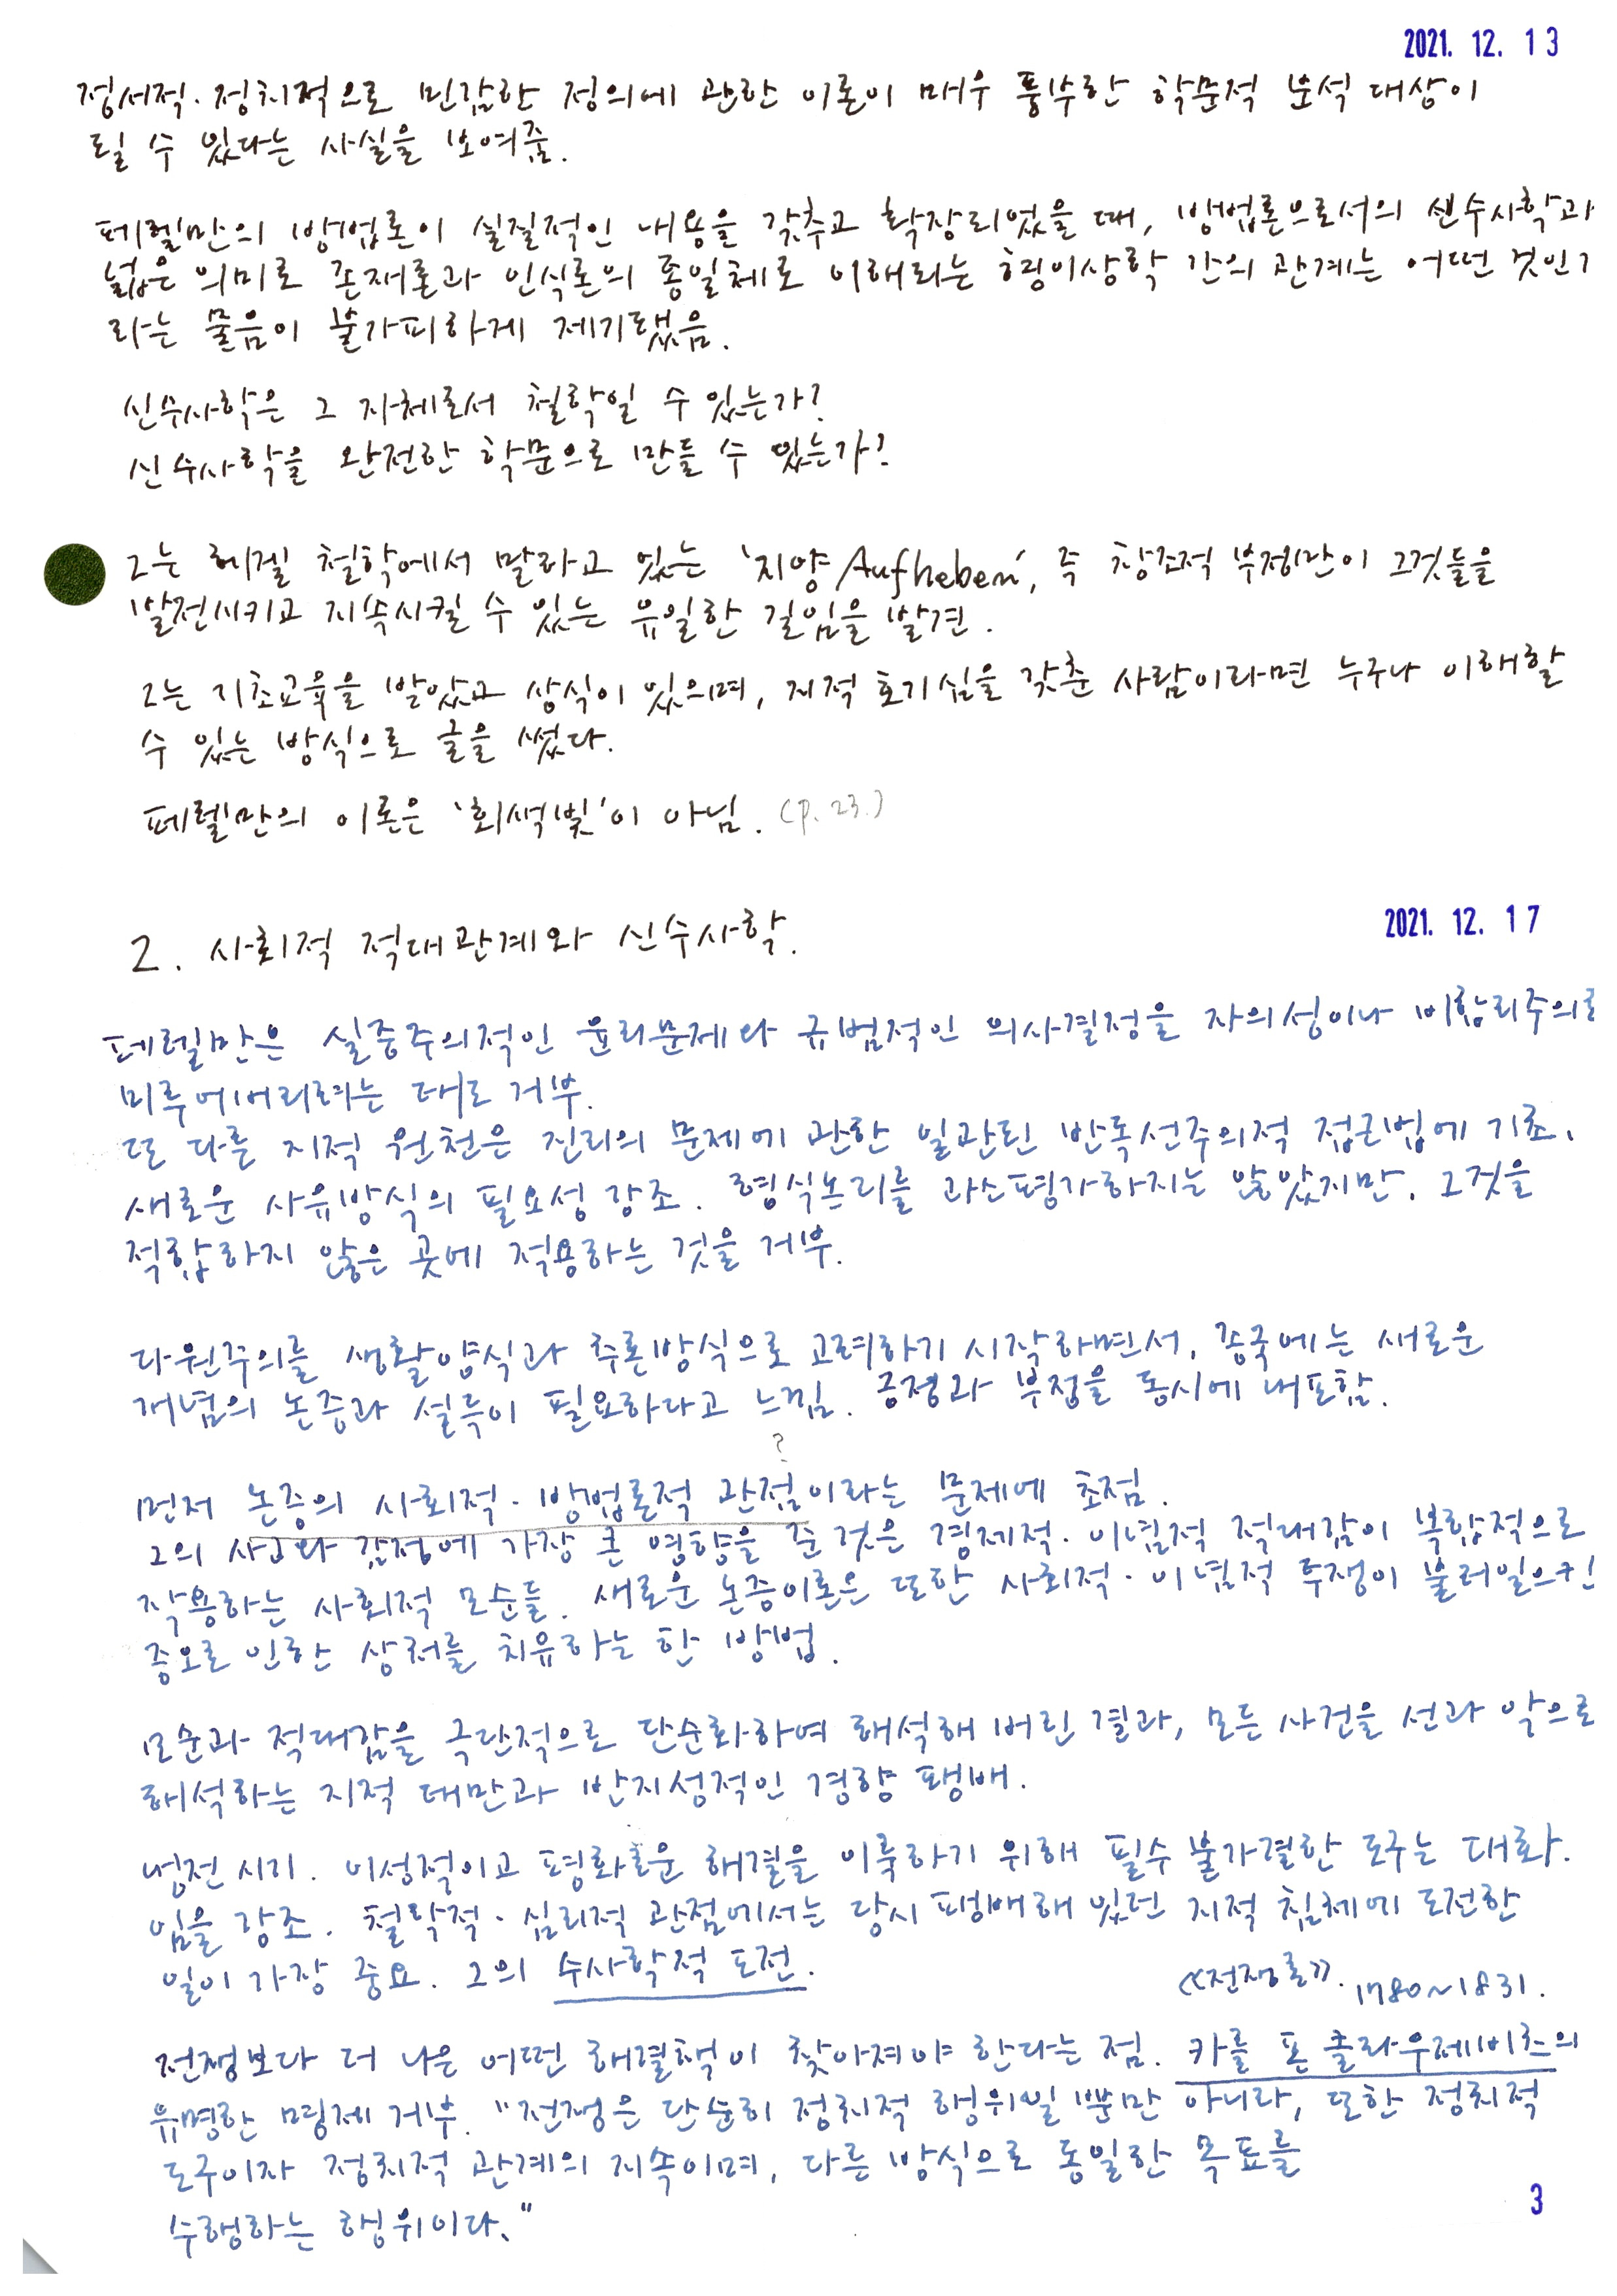 2021. 12. 13
정서적·정치적으로 민감한 정의에 관한 이론이 매우 풍부한 학문적 분석 대상이
될 수 있다는 사실을 보여줌.
페렐만의 방법론이 실질적인 내용을 갖추고 확장되었을 때, 방법론으로서의 신수사학과
넓은 의미로 존재론과 인식론의 통일체로 이해되는 형이상학 간의 관계는 어떤 것인가
라는 물음이 불가피하게 제기됐음.
신수사학은 그 자체로서 철학일 수 있는가?
신수사학을 완전한 학문으로 만들 수 있는가?
그는 헤겔 철학에서 말하고 있는 '지양Aufheben', 즉 창조적 부정만이 그것들을
발전시키고 지속시킬 수 있는 유일한 길임을 발견.
그는 기초교육을 받았고 상식이 있으며, 지적 호기심을 갖춘 사람이라면 누구나 이해할
수 있는 방식으로 글을 썼다.
페렐만의 이론은 '회색빛'이 아님. (p. 23.)
2021. 12. 17
2. 사회적 적대관계와 신수사학.
페렐만은 실증주의적인 윤리문제나 규범적인 의사결정을 자의성이나 비합리주의로
미루어버리려는 태도 거부.
또 다른 지적 원천은 진리의 문제에 관한 일관된 반독선주의적 접근법에 기초.
새로운 사유방식의 필요성 강조. 형식논리를 과소평가하지는 않았지만, 그것을
적합하지 않은 곳에 적용하는 것을 거부.
다원주의를 생활양식과 추론방식으로 고려하기 시작하면서, 종국에는 새로운
개념의 논증과 설득이 필요하다고 느낌. 긍정과 부정을 동시에 내포함.
?
먼저 논증의 사회적·방법론적 관점이라는 문제에 초점.
그의 사고와 감정에 가장 큰 영향을 준 것은 경제적·이념적 적대감이 복합적으로
작용하는 사회적 모순들. 새로운 논증이론은 또한 사회적·이념적 투쟁이 불러일으킨
증오로 인한 상처를 치유하는 한 방법.
모순과 적대감을 극단적으로 단순화하여 해석해 버린 결과, 모든 사건을 선과 악으로
해석하는 지적 태만과 반지성적인 경향 팽배.
냉전 시기. 이성적이고 평화로운 해결을 이룩하기 위해 필수 불가결한 도구는 대화.
임을 강조. 철학적·심리적 관점에서는 당시 팽배해 있던 지적 침체에 도전한
일이 가장 중요. 그의 수사학적 도전.
《전쟁론》. 1780~1831.
전쟁보다 더 나은 어떤 해결책이 찾아져야 한다는 점. 카를 폰 클라우제비츠의
유명한 명제 거부. "전쟁은 단순히 정치적 행위일 뿐만 아니라, 또한 정치적
도구이자 정치적 관계의 지속이며, 다른 방식으로 동일한 목표를
수행하는 행위이다."
3